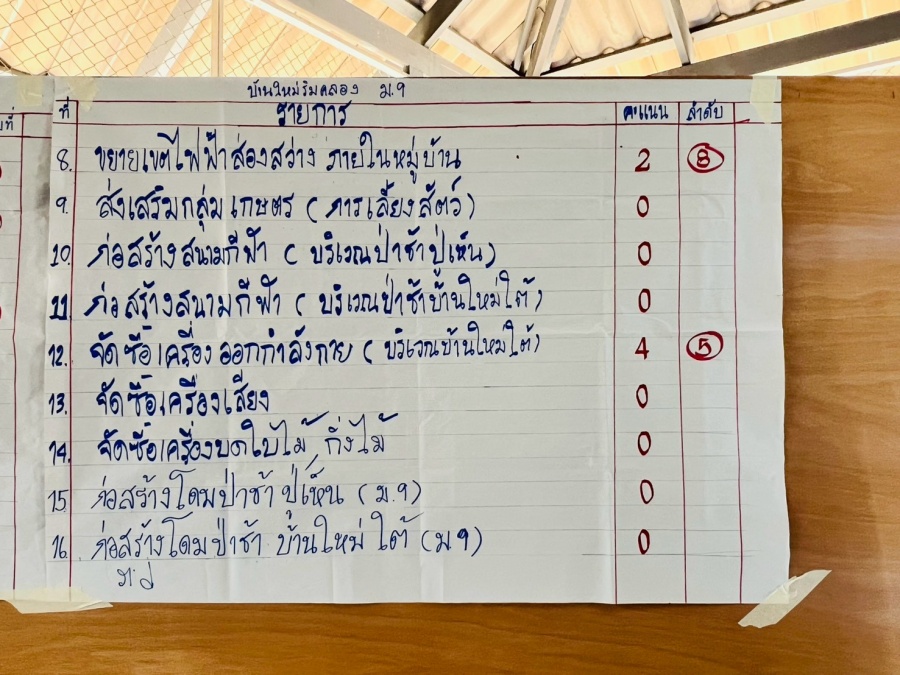 บ้านใหม่ริมคลอง ม.9
ที่ รายการ คะแนน ลำดับ
8. ขยายเขตไฟฟ้าส่องสว่าง ภายในหมู่บ้าน 2 8
9. ส่งเสริมกลุ่มเกษตร (การเลี้ยงสัตว์) 0
10. ก่อสร้างสนามกีฬา (บริเวณป่าช้าปู่เห็น) 0
11. ก่อสร้างสนามกีฬา (บริเวณป่าช้าบ้านใหม่ใต้) 0
12. จัดซื้อเครื่องออกกำลังกาย (บริเวณบ้านใหม่ใต้) 4 5
13. จัดซื้อเครื่องเสียง 0
14. จัดซื้อเครื่องบดใบไม้, กิ่งไม้ 0
15 ก่อสร้างโดมป่าช้าปู่เห็น (ม.9) 0
16. ก่อสร้างโดมป่าช้า บ้านใหม่ใต้ (ม.9) 0